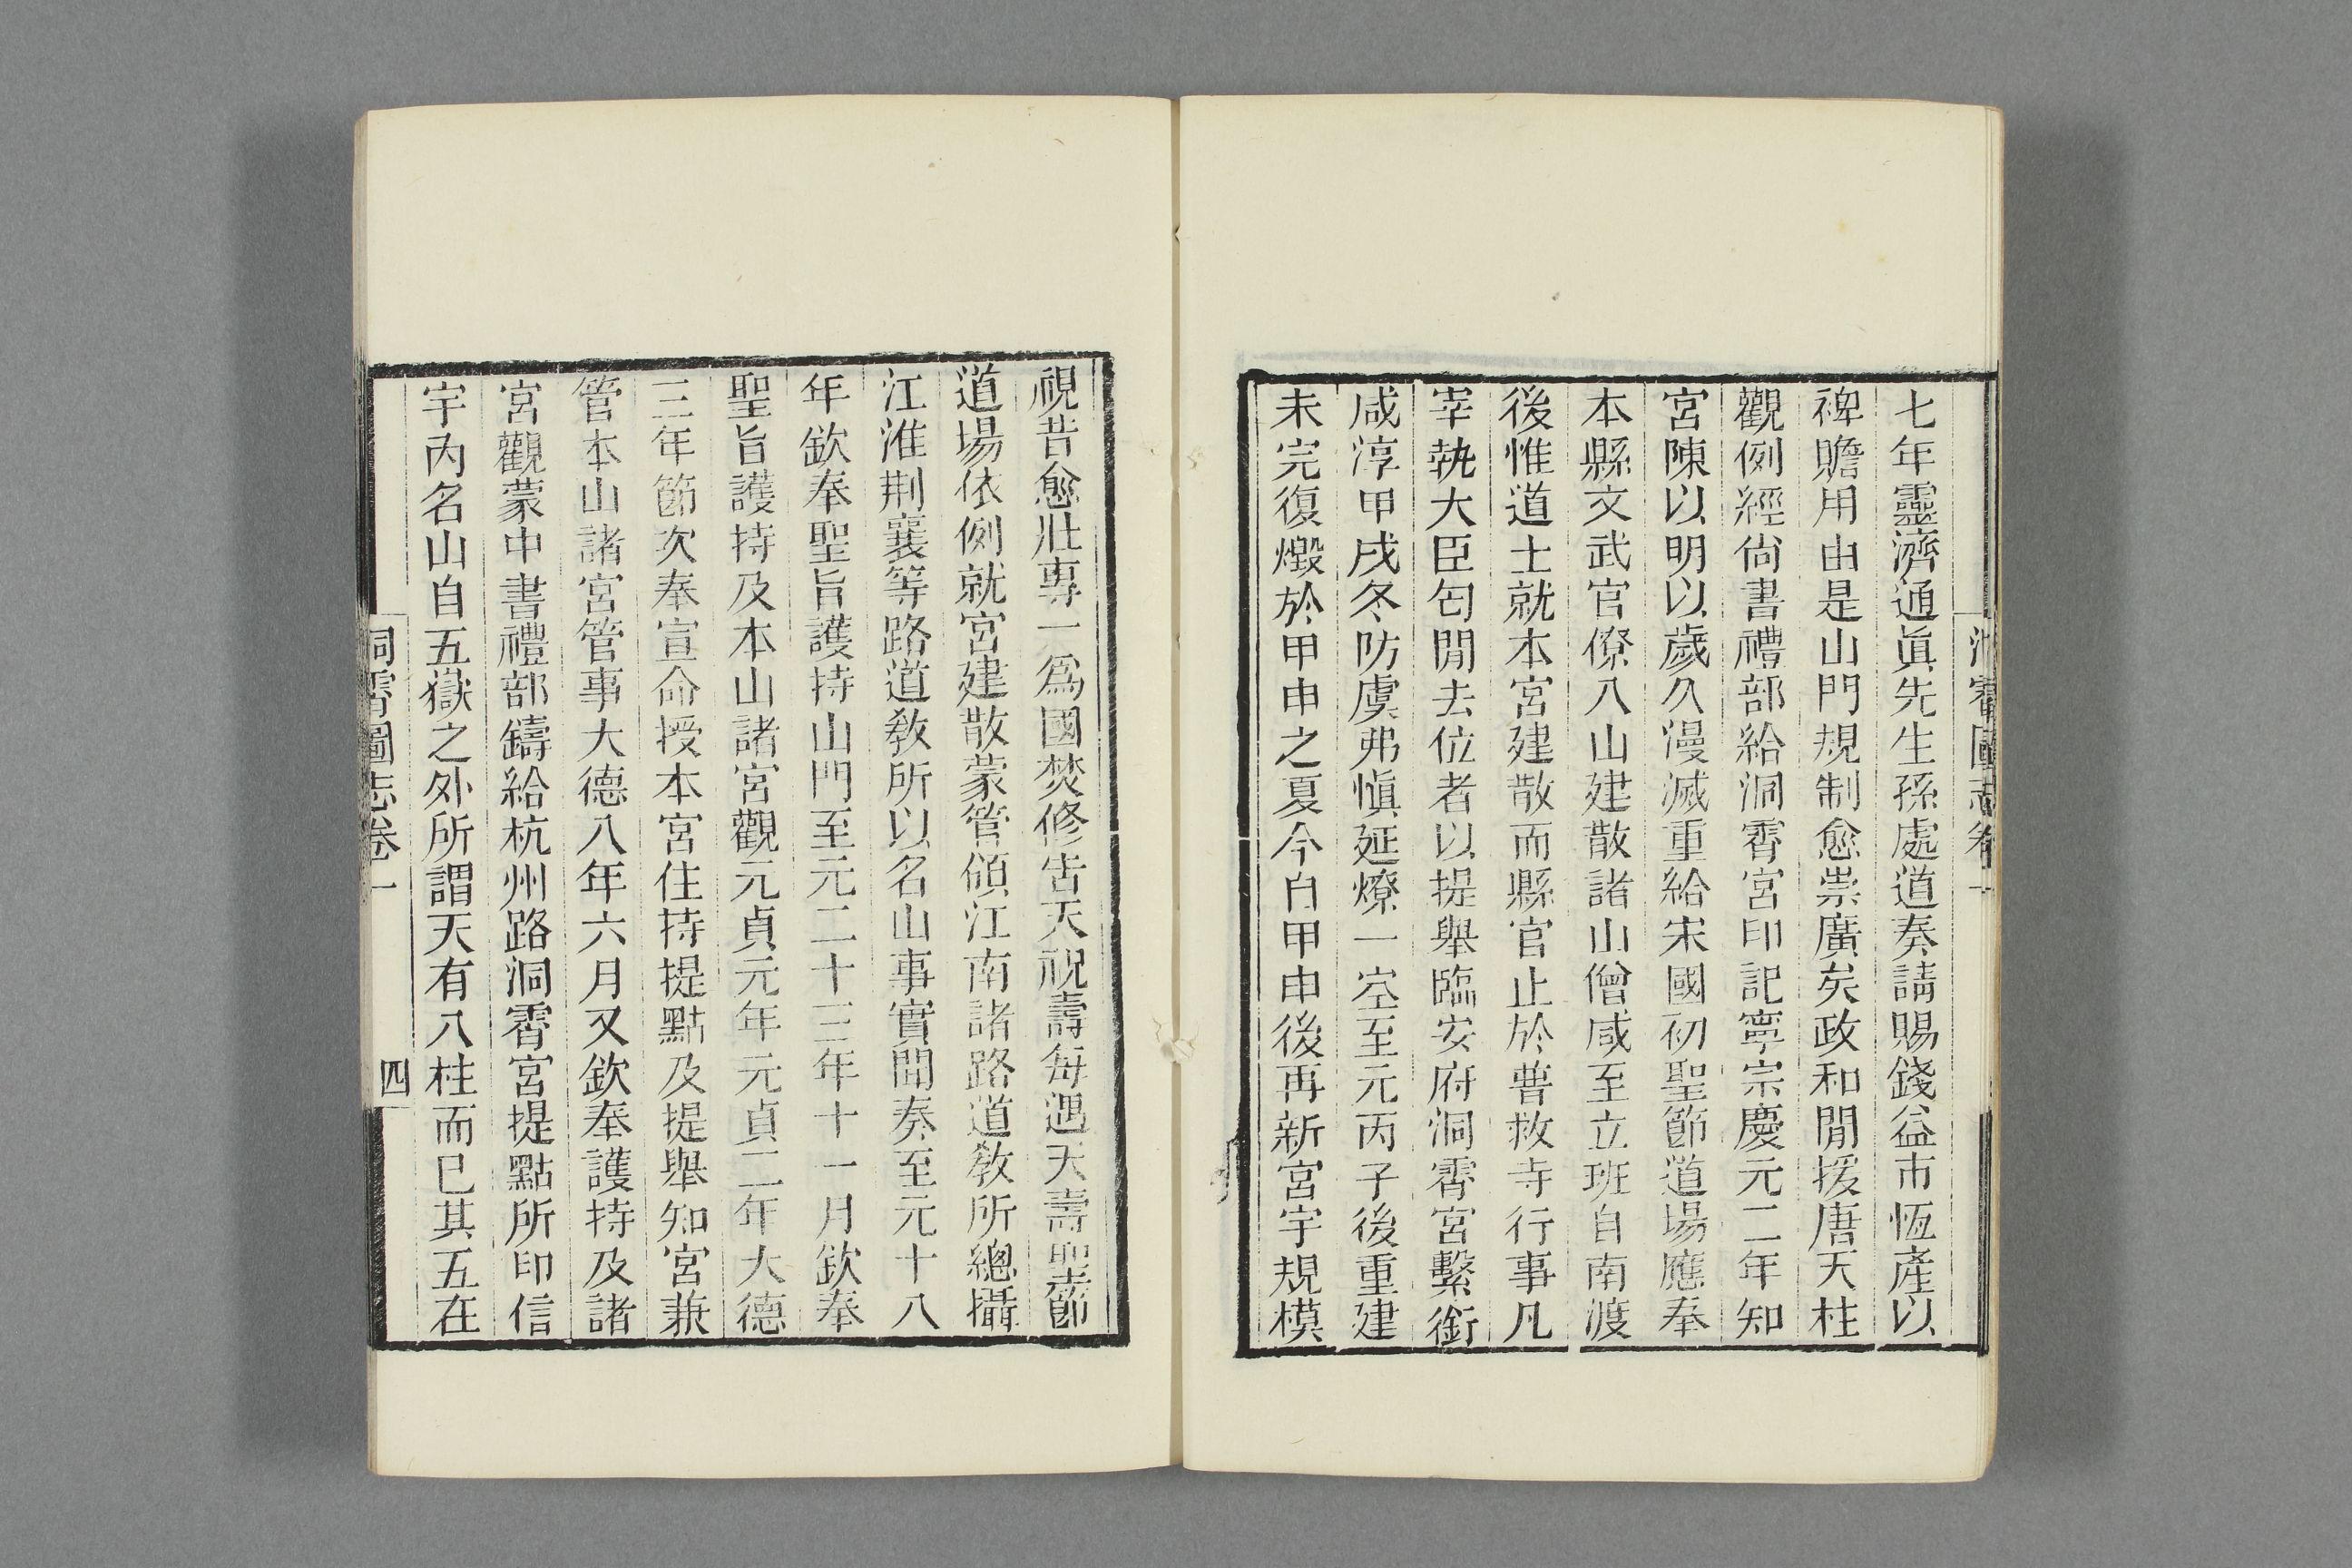 洞霄圖志卷一
七年靈濟通眞先生孫處道奏請賜錢益市恆產以
裨贍用由是山門規制愈崇廣矣政和閒援唐天柱
觀例經尙書禮部給洞霄宮印記寧宗慶元二年知
宮陳以明以歲久漫滅重給宋國初聖節道場應奉
本縣文武官僚入山建散諸山僧咸至立班自南渡
後惟道士就本宮建散而縣官止於普救寺行事凡
宰執大臣匄閒去位者以提舉臨安府洞霄宮繫銜
咸淳甲戌冬防虞弗愼延燎一空至元丙子後重建
未完復燬於甲申之夏今自甲申後再新宮宇規模
視昔愈壯專一爲國焚修告天祝壽每遇天壽聖節
道場依例就宮建散蒙管領江南諸路道敎所總攝
江淮荆襄等路道敎所以名山事實聞奏至元十八
年欽奉聖旨護持山門至元二十三年十一月欽奉
聖旨護持及本山諸宮觀元貞元年元貞二年大德
三年節次奉宣命授本宮住持提點及提舉知宮兼
管本山諸宮管事大德八年六月又欽奉護持及諸
宮觀蒙中書禮部鑄給杭州路洞霄宮提點所印信
宇內名山自五嶽之外所謂天有八柱而已其五在
洞霄圖志卷一
四